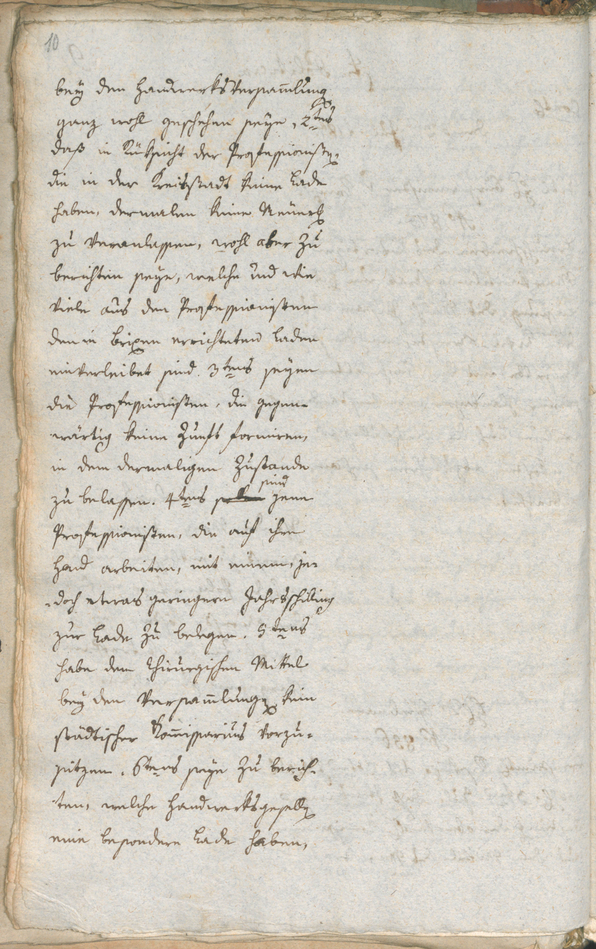 10
bey den Handwerksversam̅lung
ganz wohl geschehen seye, 2tens
daß in Rüksicht der Professionisten,
die in der Kreisstadt keine Lade
haben, dermalen keine Neüerg
zu veranlassen, wohl aber zu
berichten seye, welche und wie
viele aus den Professionisten
den in Brixen errichteten Laden
einverleibet sind. 3tens seyen
die Professionisten, die gegen-
wärtig keine Zunft formiren,
in dem dermaligen Zustande
zu belassen. 4tens sind jene
Professionisten, die auf ihre
Hand arbeiten, mit einem, je-
doch etwas geringern Jahrsschilling
zur Lade zu belegen. 5tens
habe dem Chirurgischen Mittel
bey den Versam̅lungen kein
städtischer Kom̅issarius vorzu-
sitzen. 6tens seye zu berich-
ten, welche Handwerksgesellen
eine besondere Lade haben,